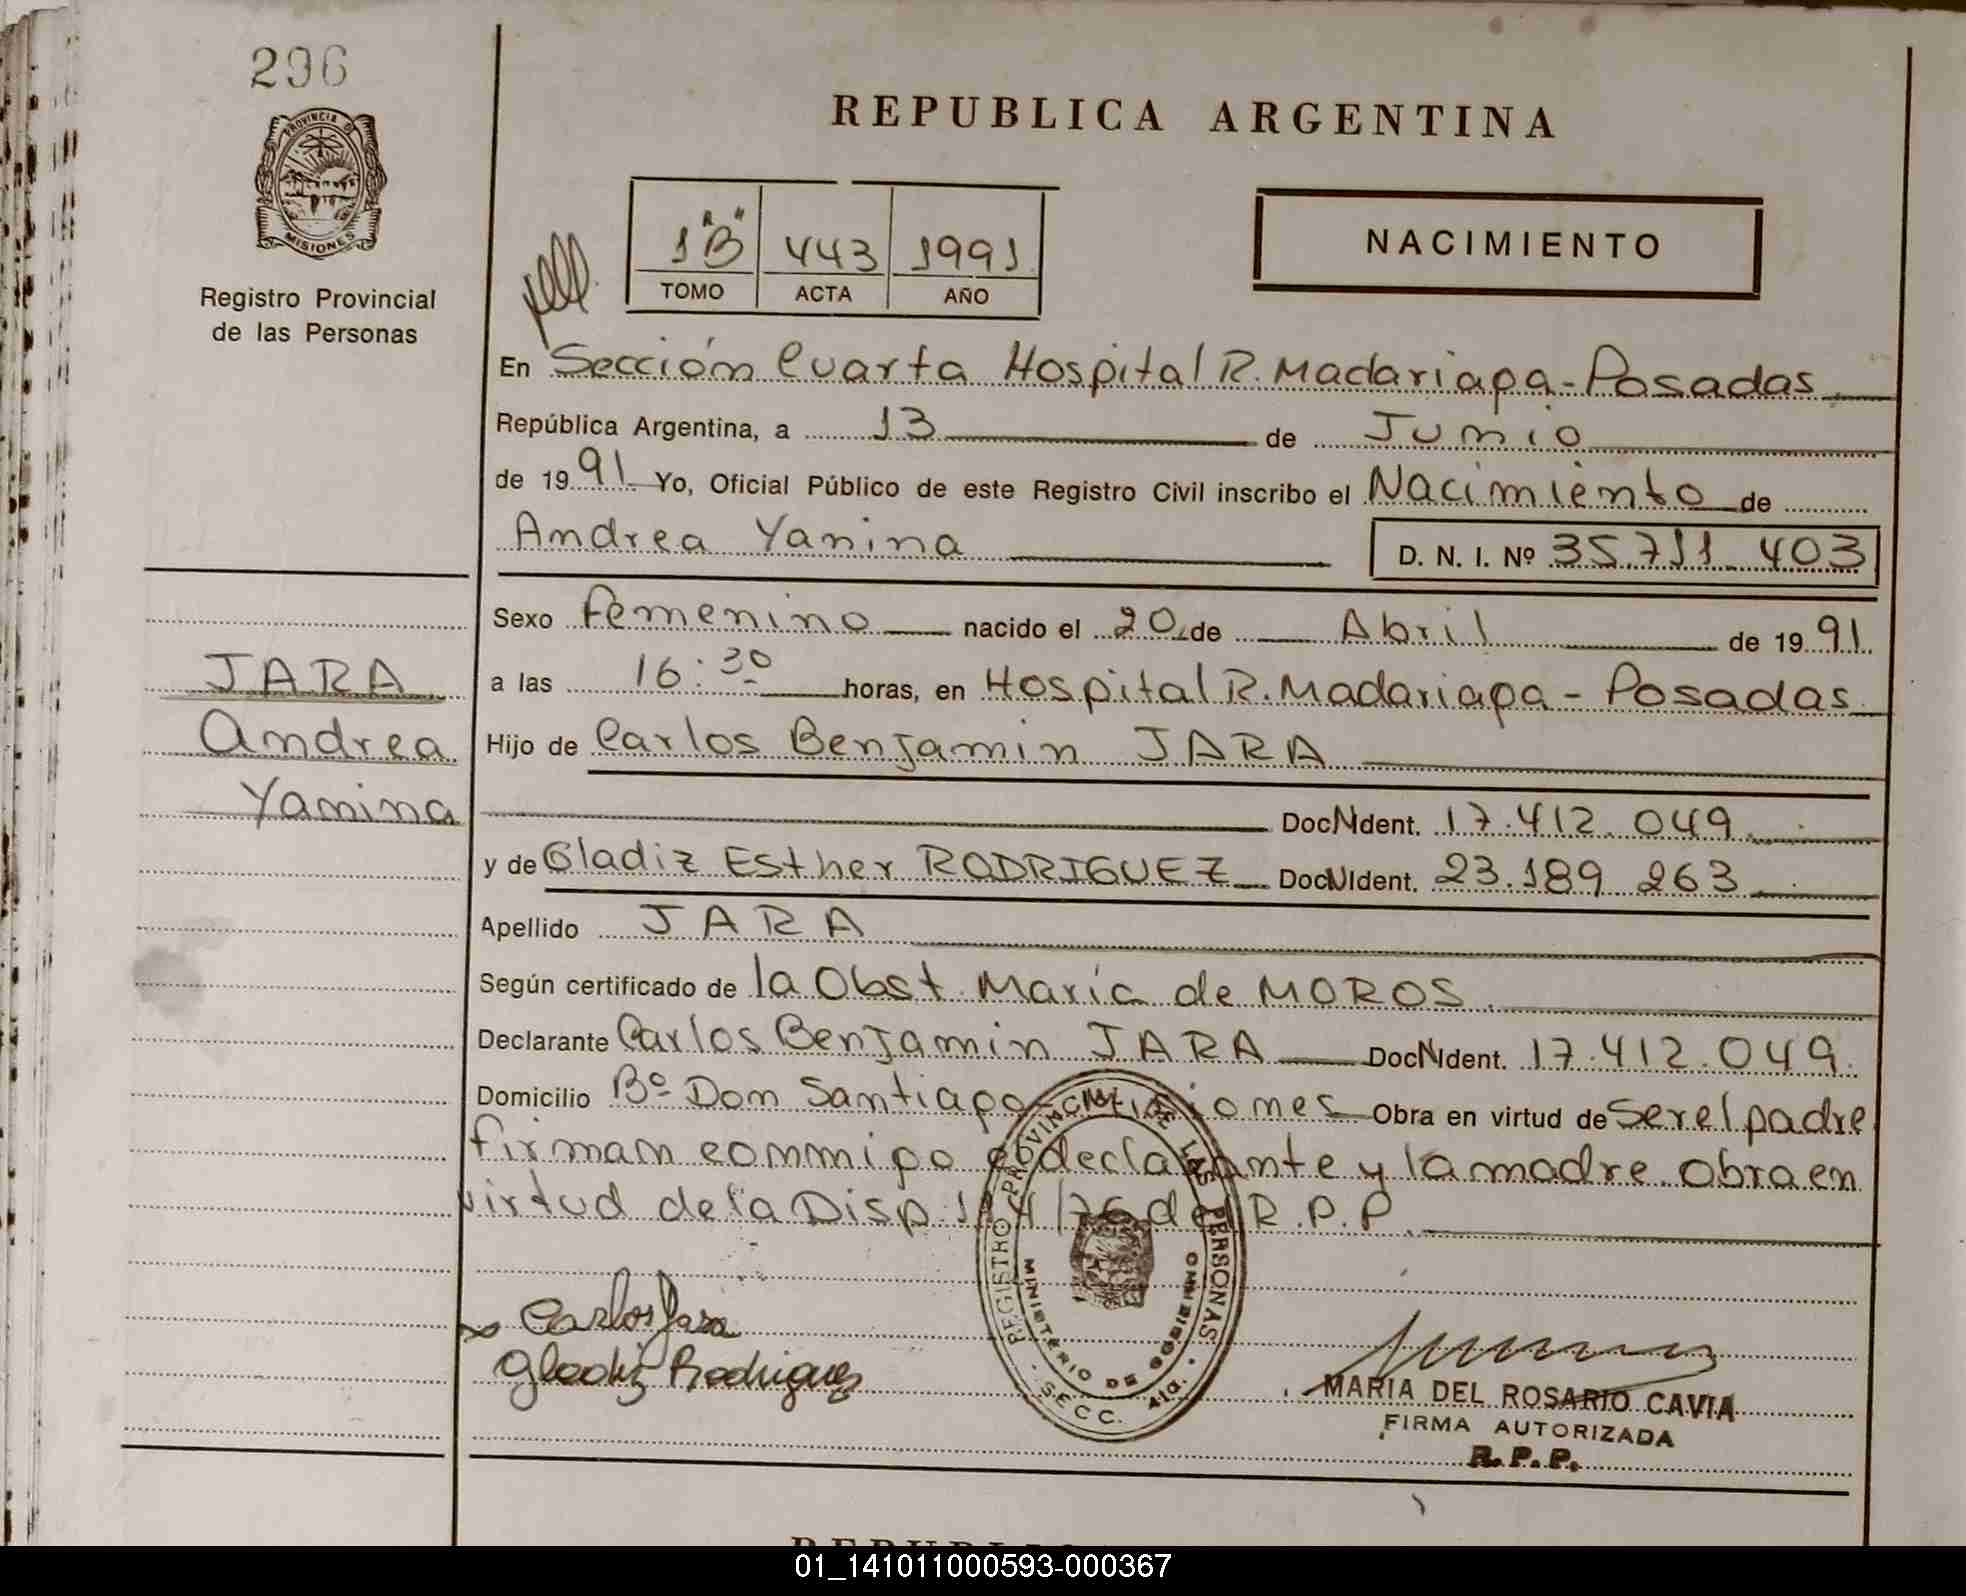 296
PROVINCIA DE
MISIONES
Registro Provincial
de las Personas
REPUBLICA ARGENTINA
1 "B" 443 1991
TOMO ACTA AÑO
NACIMIENTO
En Sección Cuarta Hospital R. Madariaga - Posadas
República Argentina, a 13 de Junio
de 1991 Yo, Oficial Público de este Registro Civil inscribo el Nacimiento de
Andrea Yanina D. N. I. Nº 35.711 403
Sexo Femenino nacido el 20 de Abril de 1991
a las 16:30 horas, en Hospital R. Madariaga - Posadas
Hijo de Carlos Benjamin JARA
DocNIdent. 17.412.049
y de Gladiz Esther RODRIGUEZ DocNIdent. 23.189 263
Apellido JARA
Según certificado de la Obst. María de MOROS.
Declarante Carlos Benjamin JARA DocNIdent. 17.412.049
Domicilio Bº Don Santiago Misiones Obra en virtud de Ser el padre
firman conmigo el declarante y la madre. obra en
virtud de la Disp. 114/76 del R.P.P.
JARA
Andrea
Yanina
Carlos Jara
Gladiz Rodriguez
REGISTRO PROVINCIAL DE LAS PERSONAS
MINISTERIO DE GOBIERNO
SECC. 4ta.
MARIA DEL ROSARIO CAVIA
FIRMA AUTORIZADA
R. P. P.
01_141011000593-000367